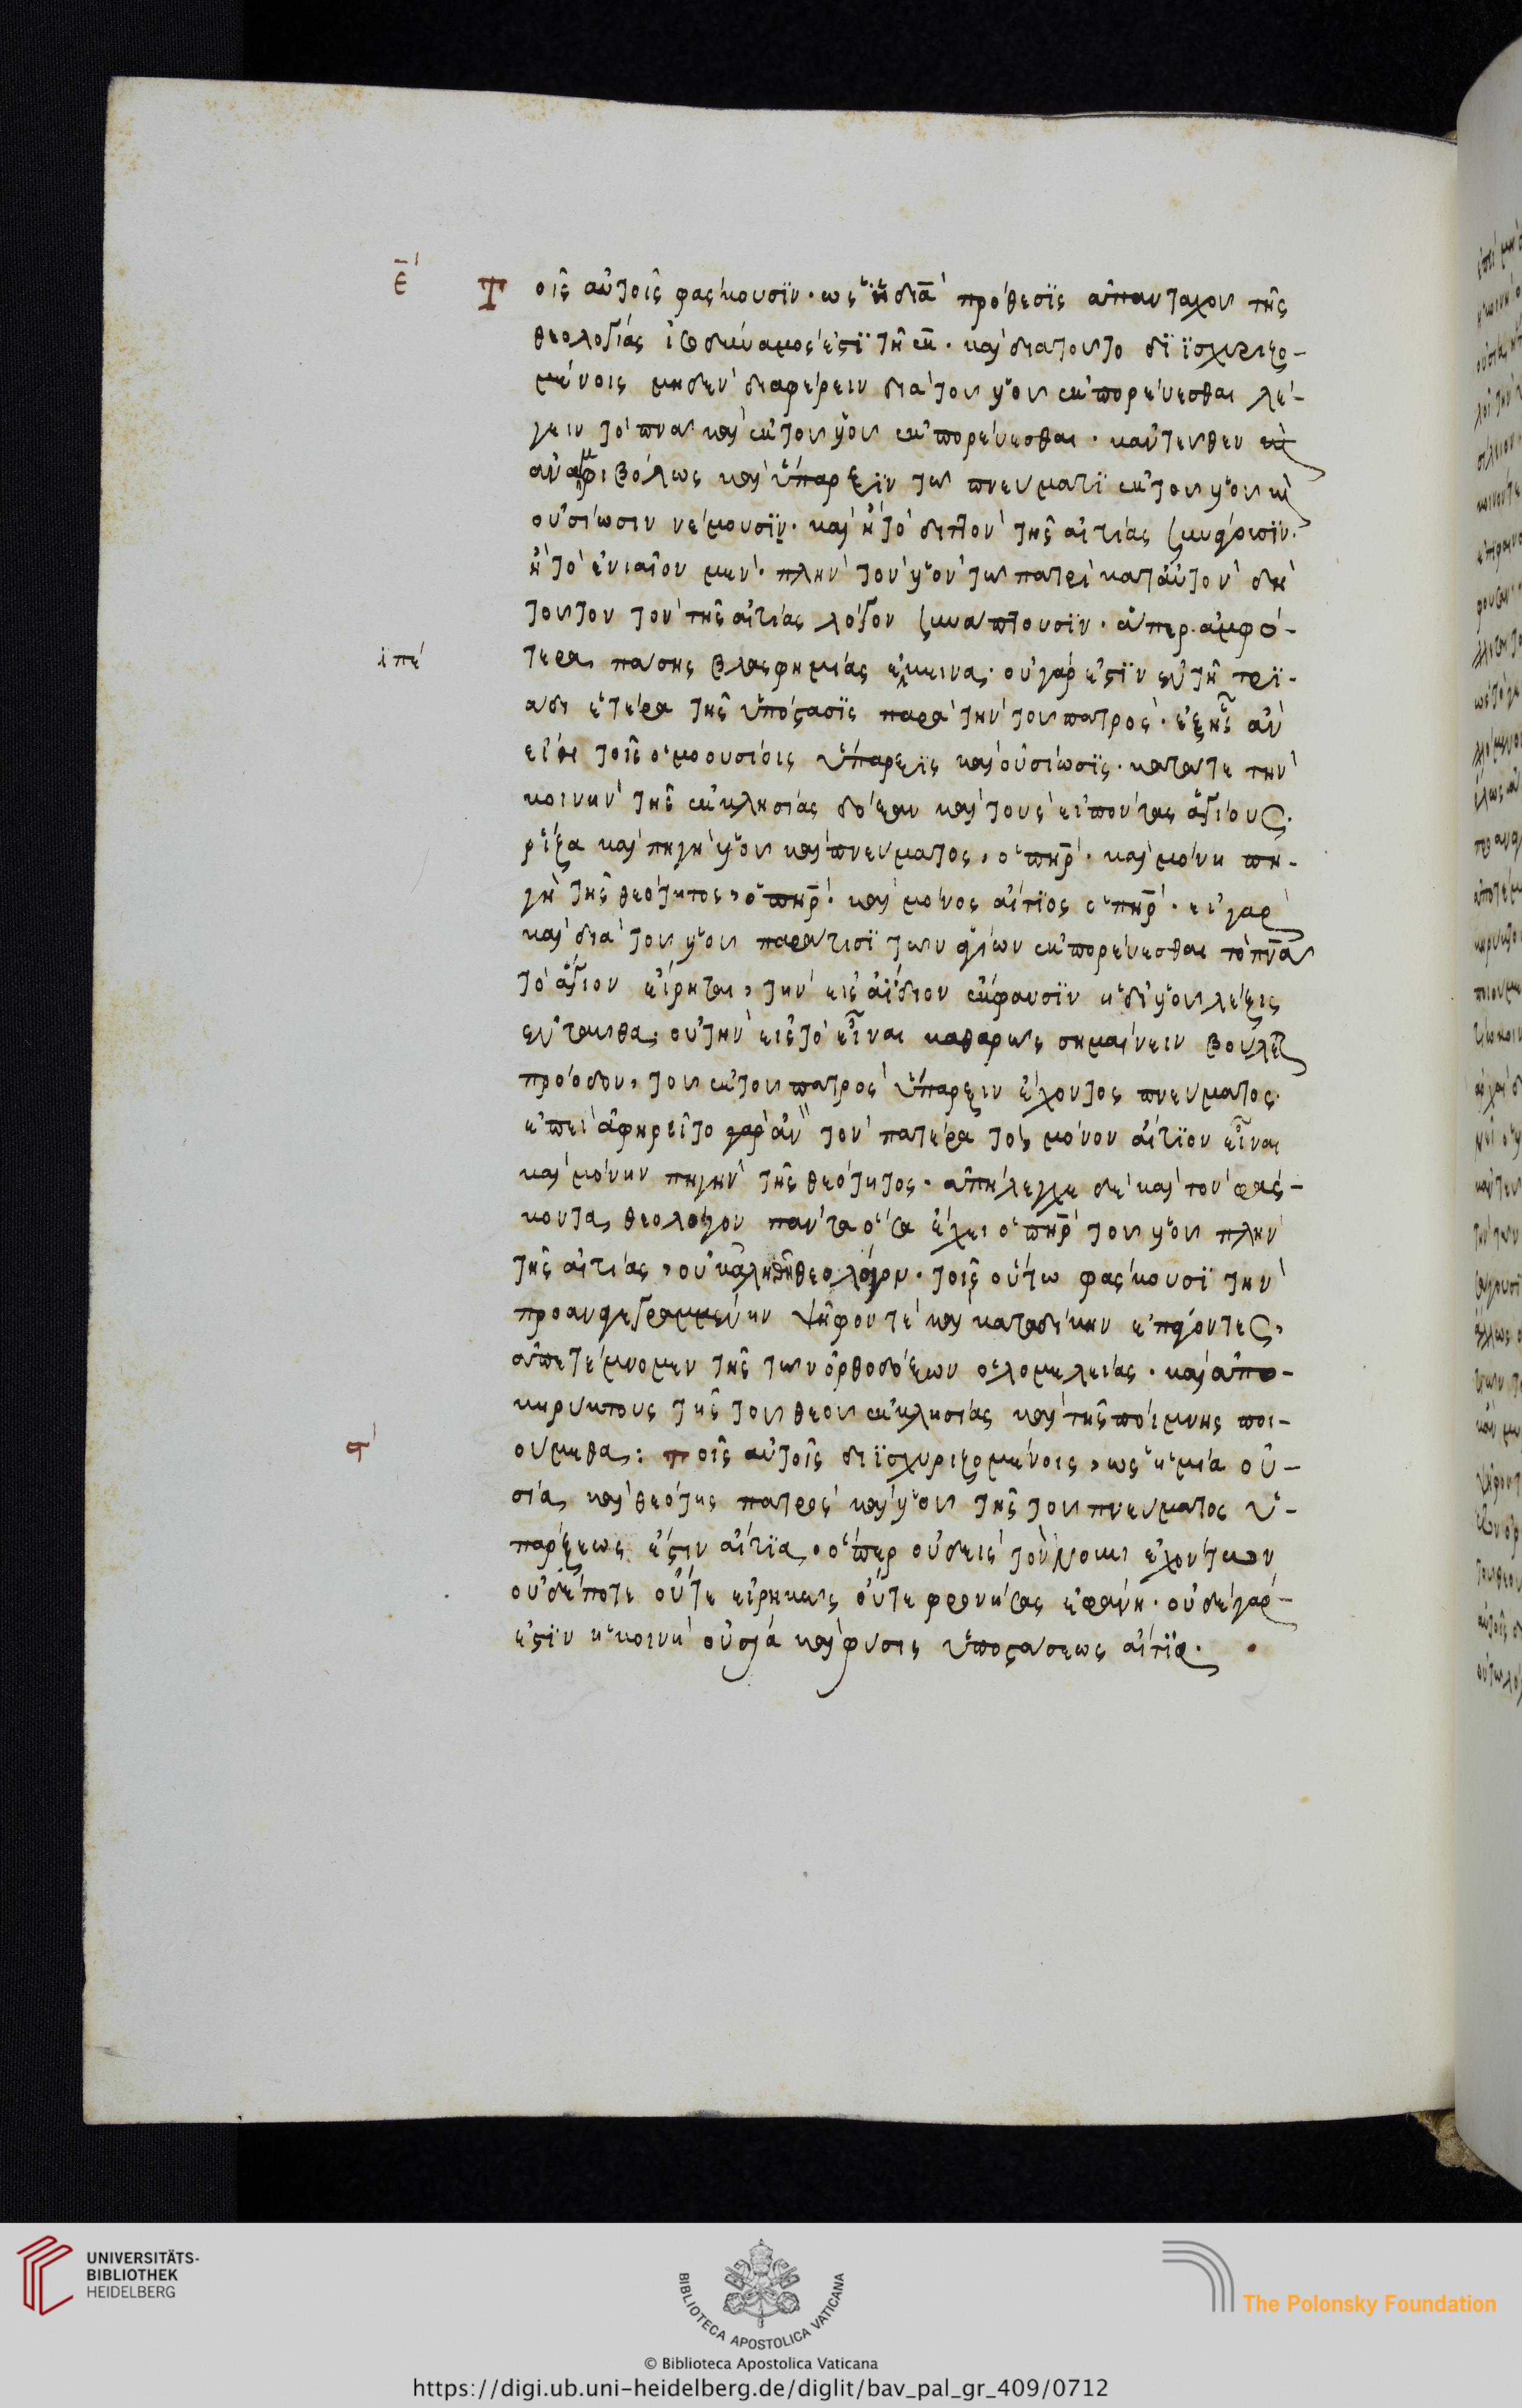 ε̄'
Τοῖς αὐτοῖς φάσκουσϊν· ὡς ἡ διὰ πρόθεσϊς ἁπανταχοῦ τῆς
θεολογίας ἰσοδύναμός ἐστϊ τῇ ἐκ· καὶ διατοῦτο δϊϊσχυριζο-
μένοις μηδὲν διαφέρειν διὰ τοῦ υἱοῦ ἐκπορεύεσθαι λέ-
γειν τὸ πνᾶ καὶ ἐκ τοῦ υἱοῦ ἐκπορεύεσθαι· καντεῦθεν
ἀναμφιβόλως καὶ ὕπαρξϊν τῶ πνεύματϊ ἐκ τοῦ υἱοῦ καὶ
οὐσίωσιν νέμουσϊν· καὶ ἢ τὸ διπλοῦν τῆς αἰτίας
ἢ τὸ ἑνιαῖον μὲν· πλὴν τὸν υἱὸν τῶ πατρὶ κατ' αὐτὸν δὴ
τοῦτον τὸν τῆς αἰτίας λόγον συνάπτουσϊν· ἅπερ ἀμφό-
ἐπέ
τερα πάσης βλασφημίας ἐπέκεινα· οὐ γάρ ἐστϊν ἐν τῇ τρϊ-
άδι ἑτέρα τῆς ὑπόστασϊς παρὰ τὴν τοῦ πατρὸς· ἐξ ἧς ἂν
εἴη τοῖς ὁμοουσίοις ὕπαρξϊς καὶ οὐσίωσϊς· κατά τε τὴν
κοινὴν τῆς ἐκκλησίας δόξαν καὶ τοὺς εἰπόντας ἁγίους·
ρίζα καὶ πηγὴ υἱοῦ καὶ πνεύματος, ὁ πηρ̄· καὶ μόνη πη-
γὴ τῆς θεότητος, ὁ πηρ̄· καὶ μόνος αἴτϊος ὁ πηρ̄· εἰ γὰρ
καὶ διὰ τοῦ υἱοῦ παρά τισϊ τῶν ἁγίων ἐκπορεύεσθαι τὸ πνᾶ
τὸ ἅγιον εἴρηται, τὴν εἰς ἀΐδιον ἔκφανσϊν ἡ δι' υἱοῦ λέξις
ἐνταῦθα, οὐ τὴν εἰς τὸ εἶναι καθαρῶς σημαίνειν βούλετ
πρόοδον, τοῦ ἐκ τοῦ πατρὸς ὕπαρξιν ἔχοντος πνεύματος·
ἐπεὶ ἀφηρεῖτο γὰρ ἂν τὸν πατέρα τὸ μόνον αἴτϊον εἶναι
καὶ μόνην πηγὴν τῆς θεότητος· ἀπήλεγχε δὲ καὶ τὸν φάσ-
κοντα θεολόγον πάντα ὅσα ἔχει ὁ πηρ̄ τοῦ υἱοῦ πλὴν
τῆς αἰτίας, οὐκ ἀληθῆ θεολόγον· τοῖς οὕτω φάσκουσϊ τὴν
προαναγεγραμμένην ψῆφόν τε καὶ καταδίκην ἐπάγοντες,
ἀπετέμνομεν τῆς τῶν ὀρθοδόξων ὁλομελείας· καὶ ἀπο-
κηρύκτους τῆς τοῦ θεοῦ ἐκκλησίας καὶ τῆς ποίμνης ποι-
ϛ'
ούμεθα: τοῖς αὐτοῖς δϊϊσχυριζομένοις, ὡς ἡ μία οὐ-
σία καὶ θεότης πατρὸς καὶ υἱοῦ τῆς τοῦ πνεύματος ὑ-
πάρξεως ἐστιν αἰτία, ὅπερ οὐδεὶς τῶν νοῦν ἐχόντων
οὐδέποτε οὔτε εἰρηκὼς οὔτε φρονήσας ἐφάνη· οὐδὲ γάρ
ἐστϊν ἡ κοινὴ οὐσία καὶ φύσις ὑποστάσεως αἰτία.
UNIVERSITÄTS-
BIBLIOTHEK
HEIDELBERG
BIBLIOTECA APOSTOLICA VATICANA
The Polonsky Foundation
© Biblioteca Apostolica Vaticana
https://digi.ub.uni-heidelberg.de/diglit/bav_pal_gr_409/0712